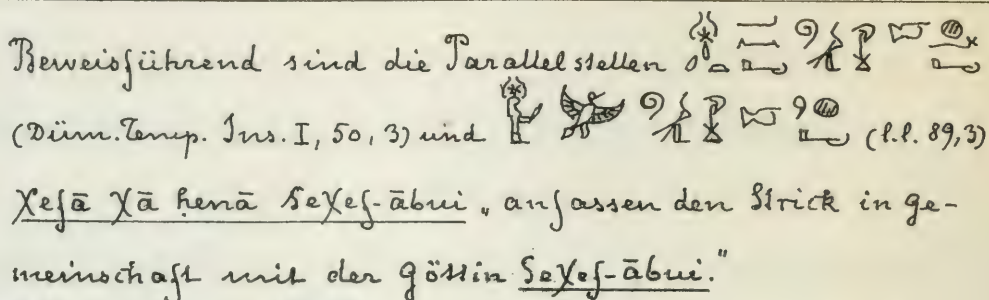 Beweisführend sind die Parallelstellen
(Düm. Temp. Ins. I, 50, 3) und (l.l. 89,3)
χefā χā ḥenā Seχef-ābui „anfassen den Strick in ge-
meinschaft mit der göttin Seχef-ābui."